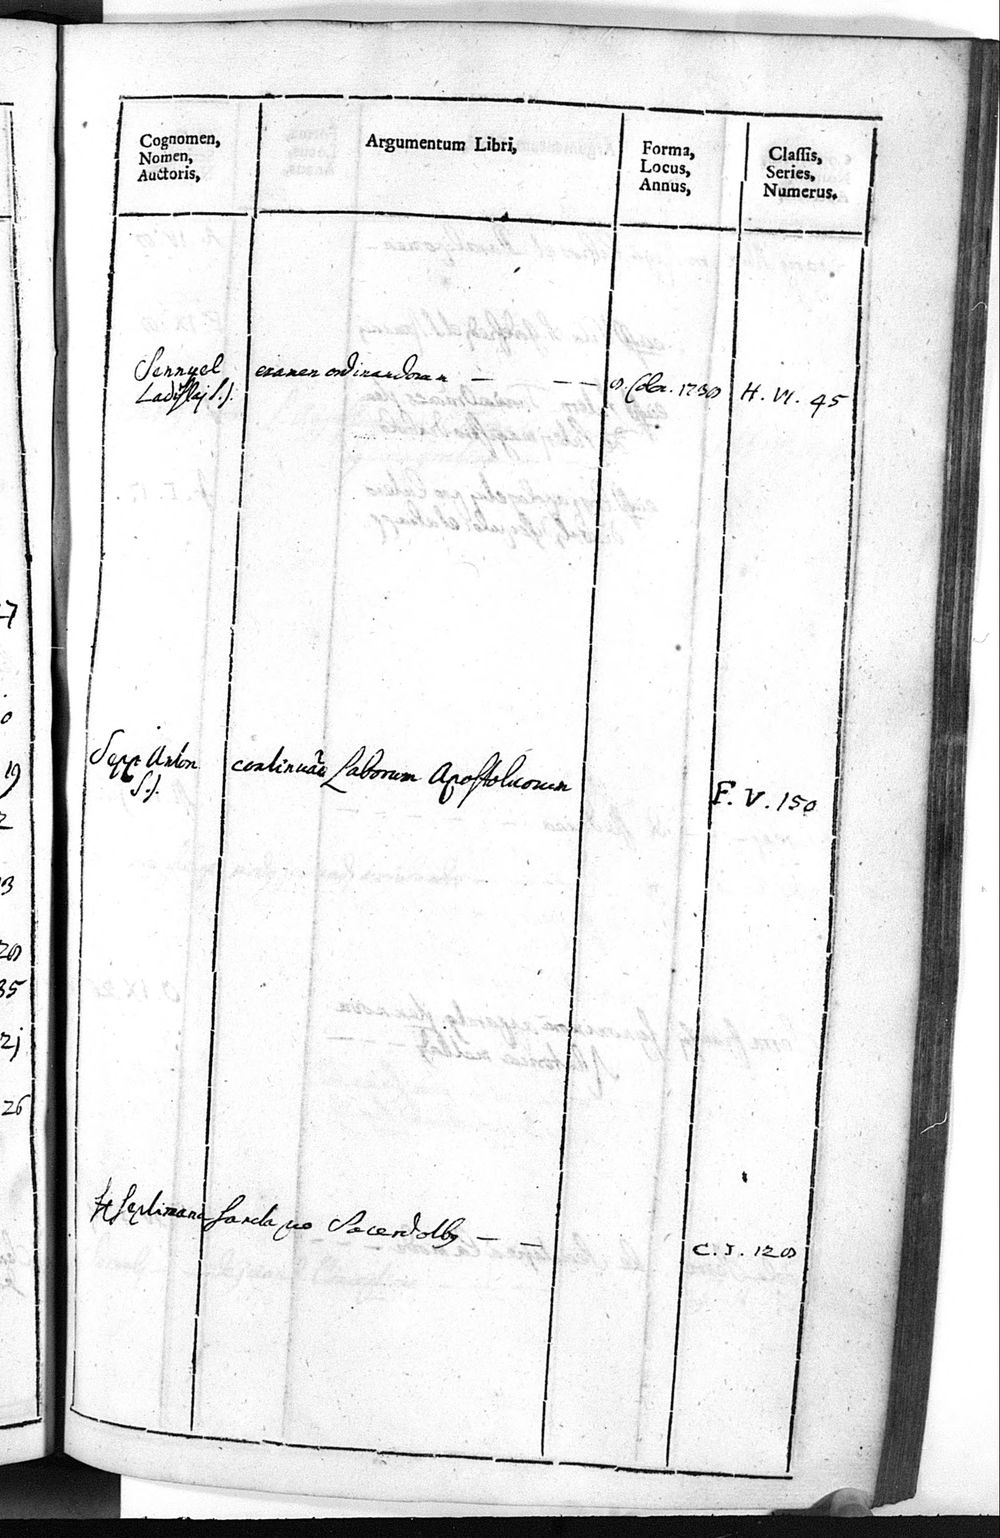 Cognomen,
Nomen,
Auctoris,
Argumentum Libri,
Forma,
Locus,
Annus,
Classis,
Series,
Numerus.
Sennyel
Ladislaj S.J.
examen ordinandorum — — —
8. Cla. 1730
H. VI. 45
Sepp Anton
S.J.
continuão Laborum Apostolicorum
F. V. 150
Septimana Sancta pro Sacerdotibg — —
C. I. 120
47
0
19
2
13
20
35
21
26